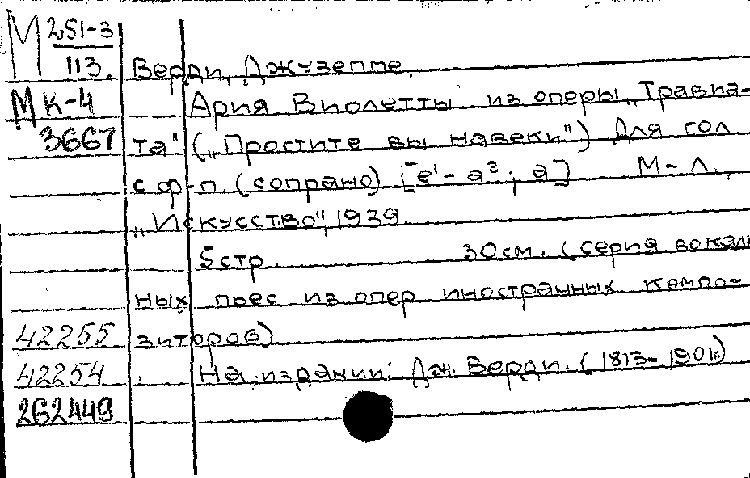 М 251-3
113. Верди, Джузеппе.
МК-4 Ария Виолетты из оперы „Травиа-
3667 та" („Простите вы навеки") Для гол
с ф-п. (сопрано) [e¹- a²; a] М-Л.,
„Искусство", 1939.
5 стр. 30 см. (серия вокаль
ных пьес из опер иностранных компо-
42255 зиторов)
42254 . На издании: Дж. Верди. (1813-1901г)
262449